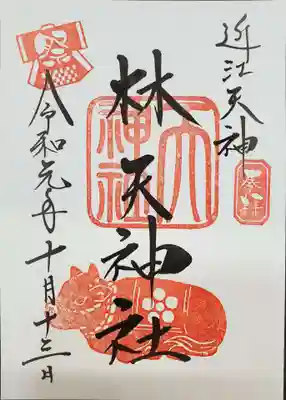 近江天神
奉拝
林天神社
天
神社
祭
令和元年十月十三日